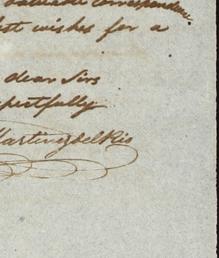 valuable correspondence
best wishes for a
dear Sirs
spectfully
Martinez del Rio